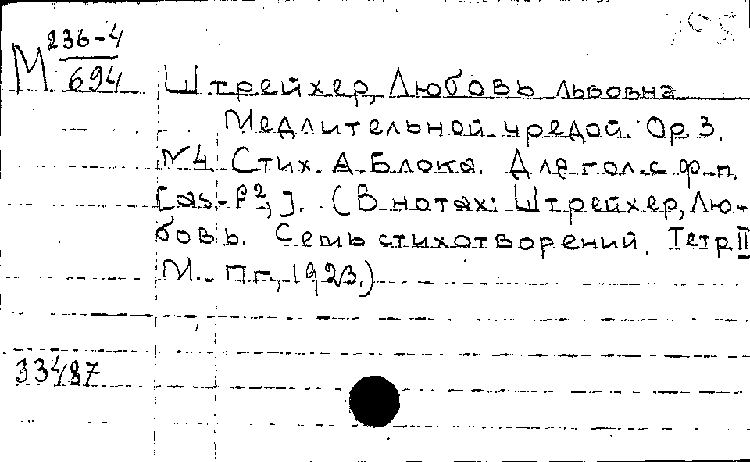 М 236-4
694
Штрейхер, Любовь Львовна
Медлительной чредой. Ор. 3.
№4. Стих. А. Блока. Для гол. с ф-п.
[as-f²,]. (В нотах: Штрейхер, Лю-
бовь. Семь стихотворений. Тетр. II
М. - Пг., 1923.)
33487